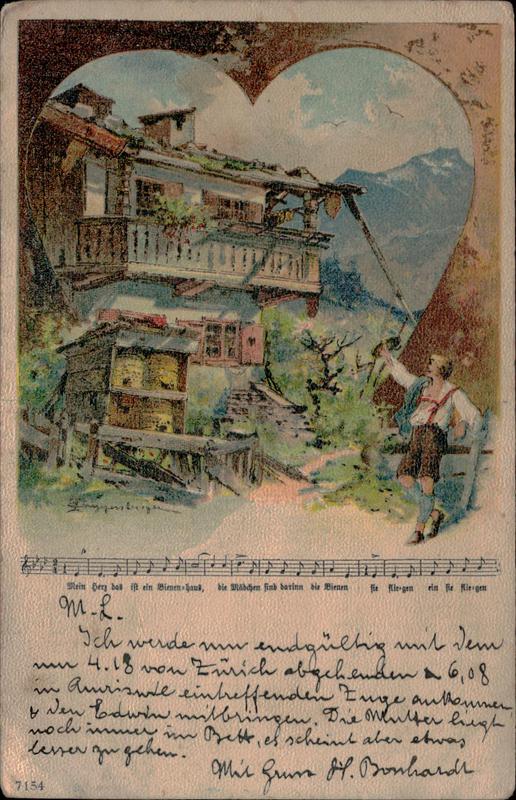 Mein Herz das ist ein Bienen-haus, die Mädchen sind darinn die Bienen sie flie-gen ein sie flie-gen
M. L.
Ich werde nun endgültig mit dem
um 4.18 von Zürich abgehenden 6,08
in eintreffenden Zuge ankommen
& den Edwin mitbringen. Die Mutter liegt
noch immer im Bett, es scheint aber etwas
besser zu gehen.
Mit Gruss H. Bonhardt
7154